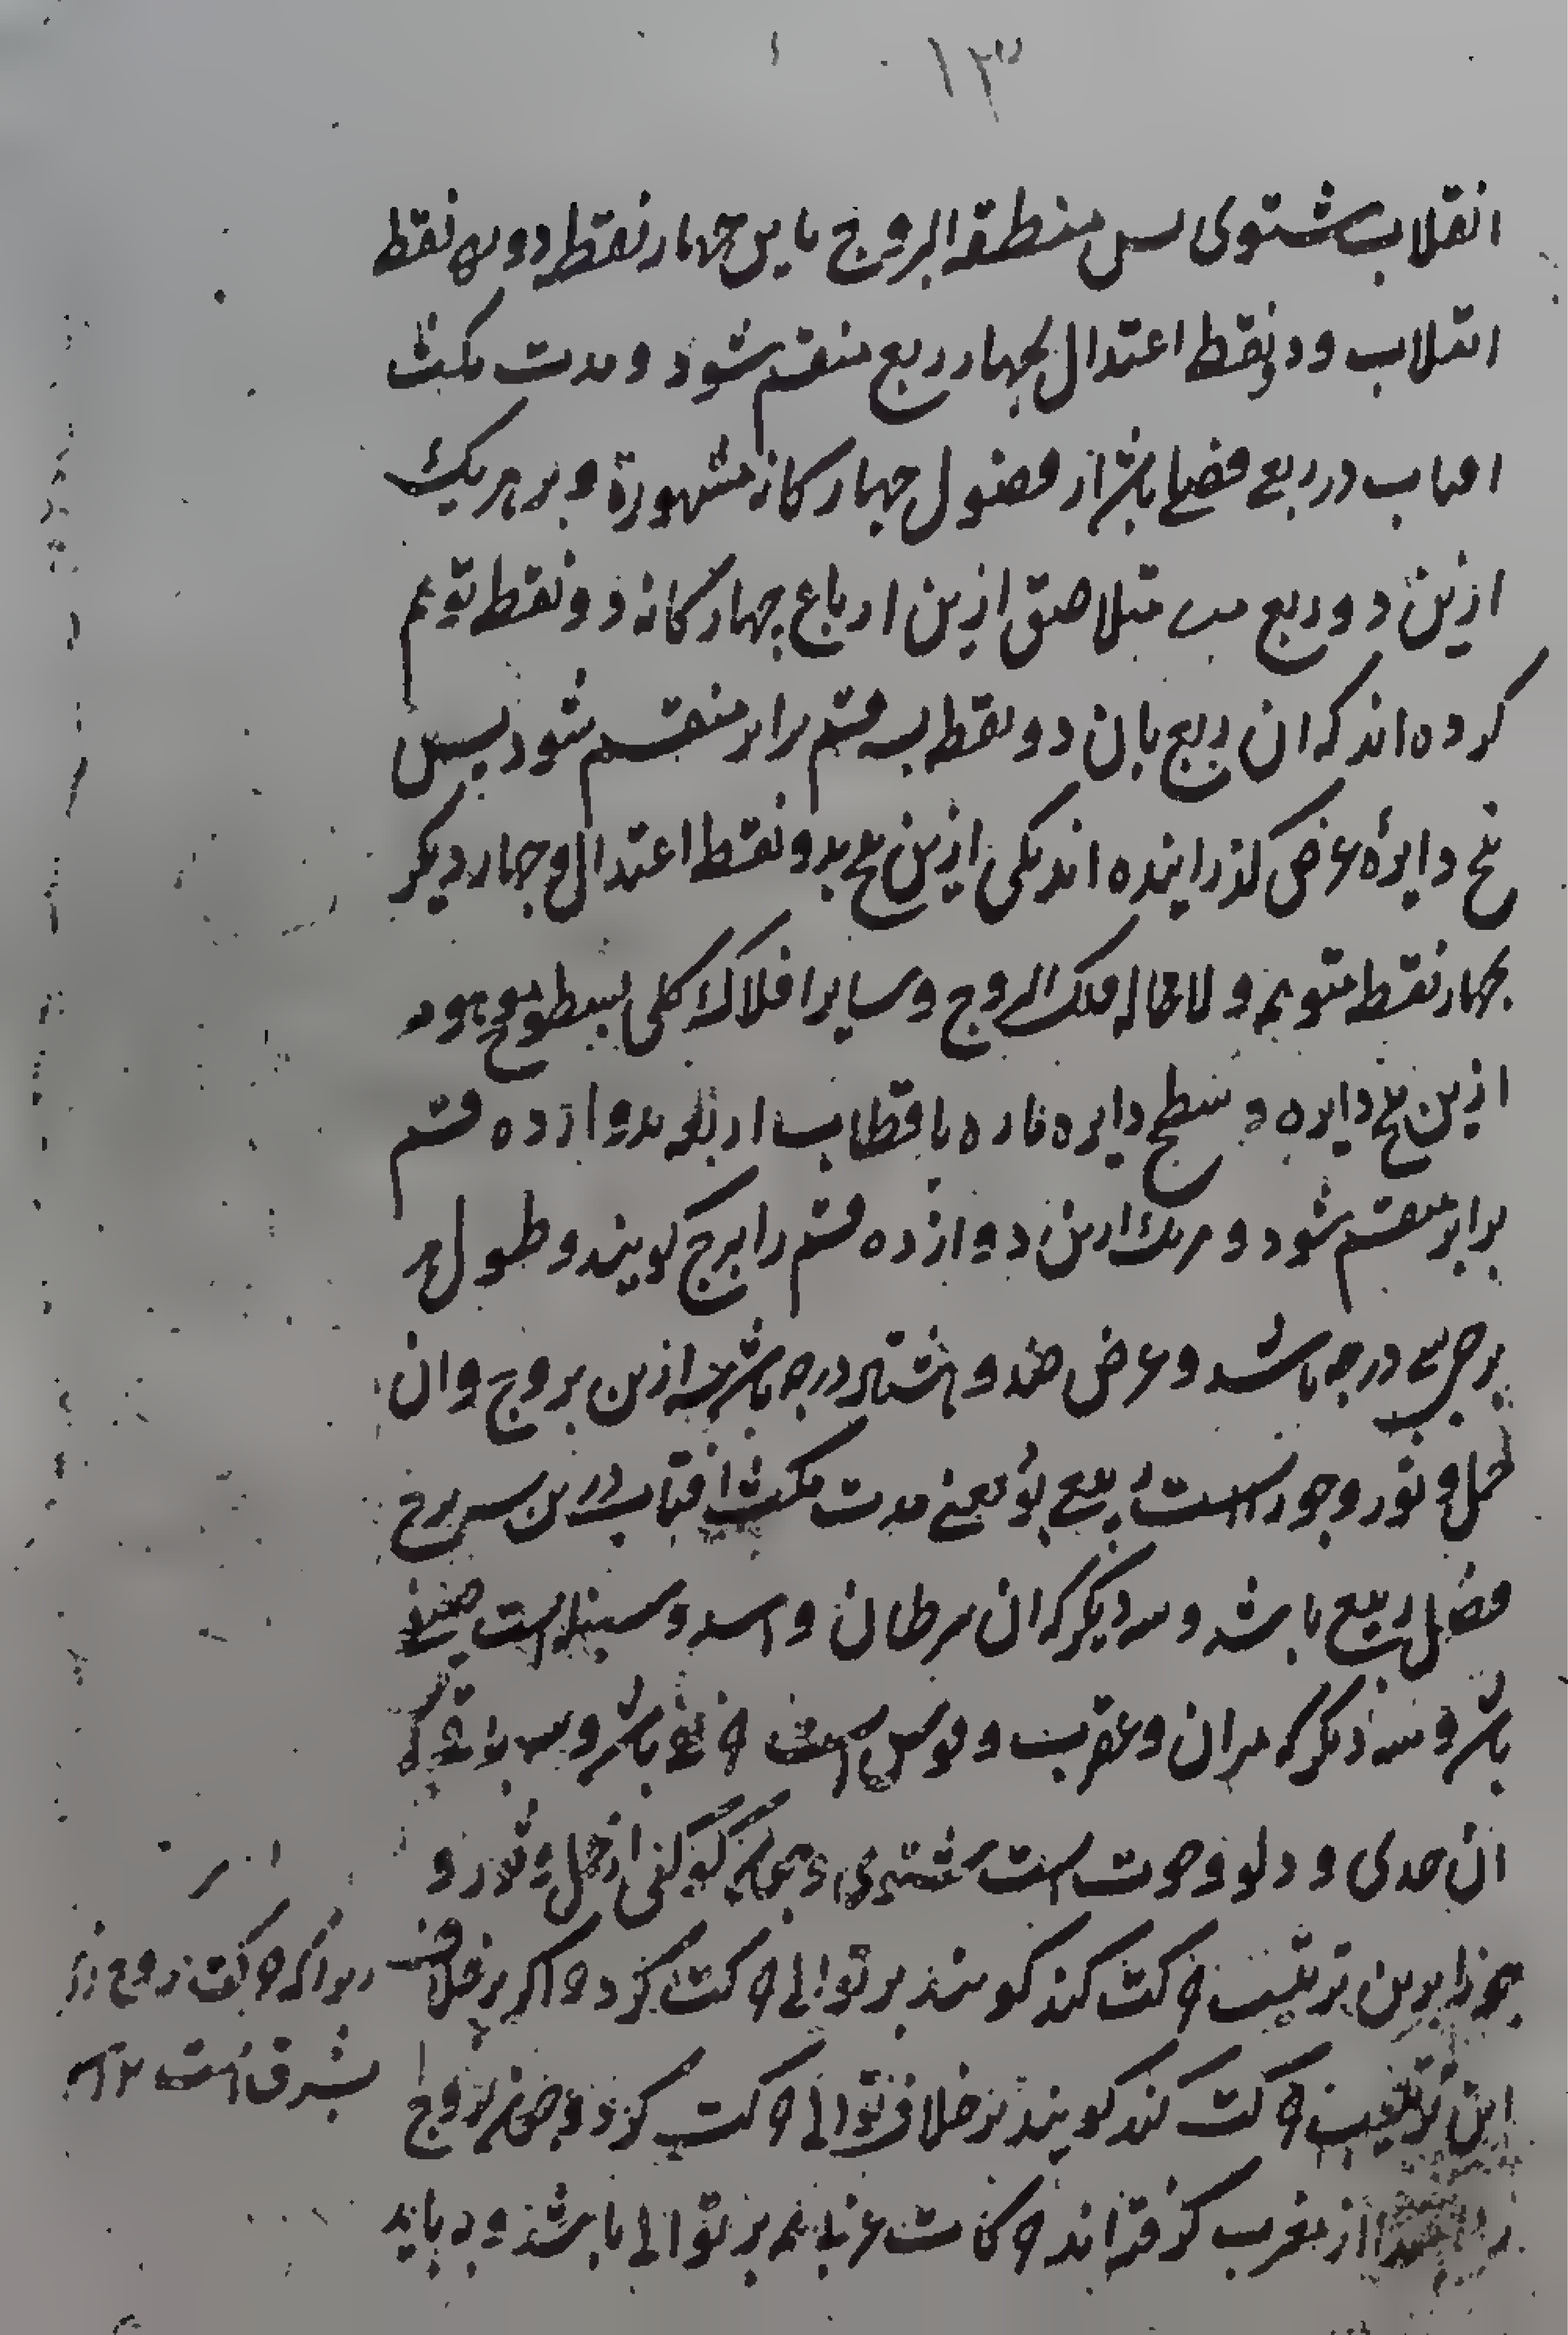 ۱۳
انقلاب شتوی پس منطقة البروج باین چهار نقطه دو نقطه
انقلاب و دو نقطه اعتدال بچهار ربع منقسم شود و مدت مکث
افتاب در ربعی فصلی باشد از فصول چهار کانه مشهوره و بر هر یک
ازین دو ربع متلاصق ازین ارباع چهار کانه دو نقطه توهم
کرده اند که ان ربع بان دو نقطه بسه قسم برابر منقسم شود پس
پنج دایرهٔ عرض کذرانیده اند یکی ازین پنج بدو نقطه اعتدال و چهار دیکر
بچهار نقطه متوهمه و لا محاله فلک البروج و سایر افلاک کلی بسطوح موهومه
ازین پنج دایره و سطح دایره ماره باقطاب اربعه بدوازده قسم
برابر منقسم شود و هر یک ازین دوازده قسم را برج کویند و طول هر
برجی سی درجه باشد و عرض صد و هشتاد درجه باشد سه ازین بروج و ان
حمل و ثور و جوزاست ربیعی بود یعنی مدت مکث افتاب درین سه برج
فصل ربیع باشد و سه دیکر که ان سرطان و اسد و سنبله است صیفی
باشد و سه دیکر که میزان و عقرب و قوس است خریفی باشد و سه باقی که
ان جدی و دلو و حوت است شتوی و چون کوکبی از حمل و ثور و
جوزا برین ترتیب حرکت کند کویند بر توالی حرکت کرد و اکر بر خلاف
این ترتیب حرکت کند کویند بر خلاف توالی حرکت کرد و چون بروج
را ابتدا از مغرب کرفته اند حرکات غربیه بر توالی باشد و بباید
حرکت بروج از
بشرق است ۱۲